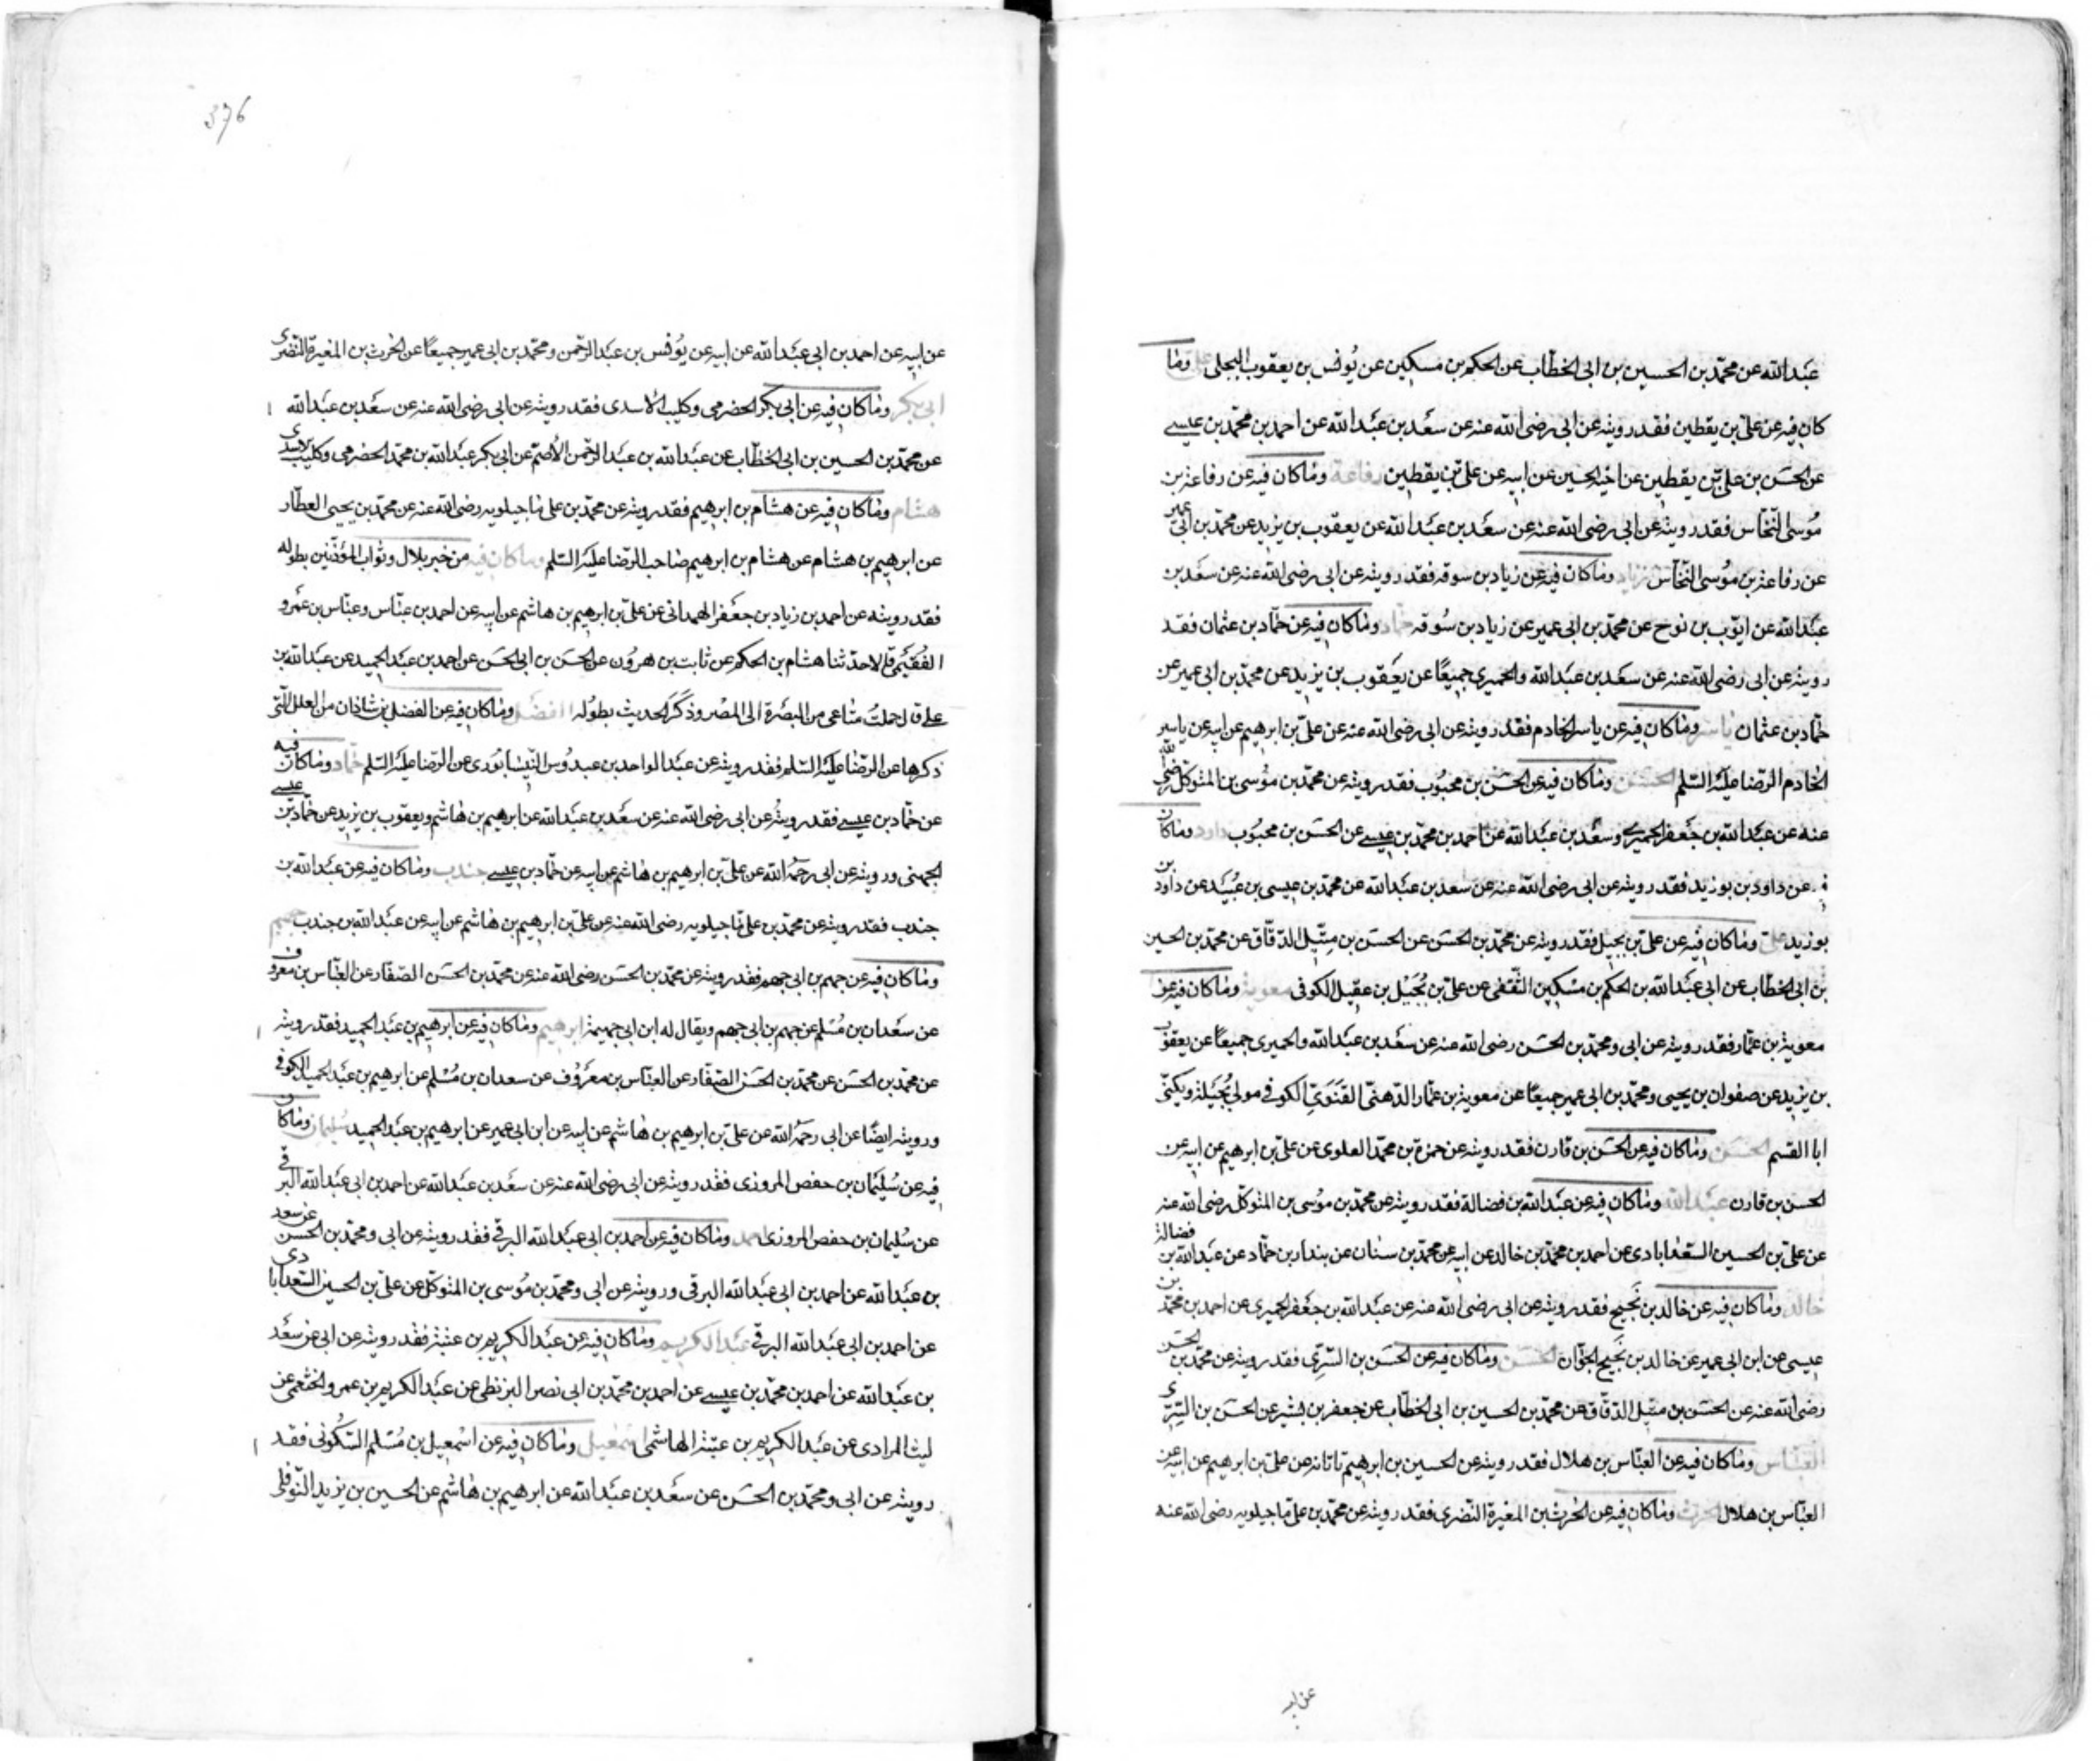 عبد الله عن محمد بن الحسين بن ابى الخطاب عن الحكم بن مسكين عن يونس بن يعقوب البجلى على وما
كان فيه عن على بن يقطين فقد رويته عن ابى رضى الله عنه عن سعد بن عبد الله عن احمد بن محمد بن عيسى
عن الحسن بن على بن يقطين عن اخيه الحسين عن ابيه عن على بن يقطين رفاعة وما كان فيه عن رفاعة بن
موسى النخاس فقد رويته عن ابى رضى الله عنه عن سعد بن عبد الله عن يعقوب بن يزيد عن محمد بن ابى عمير
عن رفاعة بن موسى النخاس زياد وما كان فيه عن زياد بن سوقه فقد رويته عن ابى رضى الله عنه عن سعد بن
عبد الله عن ايوب بن نوح عن محمد بن ابى عمير عن زياد بن سوقه حماد وما كان فيه عن حماد بن عثمان فقد
رويته عن ابى رضى الله عنه عن سعد بن عبد الله والحميرى جميعا عن يعقوب بن يزيد عن محمد بن ابى عمير عن
حماد بن عثمان ياسر وما كان فيه عن ياسر الخادم فقد رويته عن ابى رضى الله عنه عن على بن ابرهيم عن ابيه عن ياسر
الخادم الرضا عليه السلم الحسن وما كان فيه عن الحسن بن محبوب فقد رويته عن محمد بن موسى بن المتوكل رضى الله
عنه عن عبد الله بن جعفر الحميرى وسعد بن عبد الله عن احمد بن محمد بن عيسى عن الحسن بن محبوب داود وما كان
فيه عن داود بن بوزيد فقد رويته عن ابى رضى الله عنه عن سعد بن عبد الله عن محمد بن عيسى بن عبيد عن داود بن
بوزيد على وما كان فيه عن على بن بجيل فقد رويته عن محمد بن الحسن عن الحسن بن متيل الدقاق عن محمد بن الحسين
بن ابى الخطاب عن ابى عبد الله بن الحكم بن مسكين الثقفى عن على بن بجيل بن عقيل الكوفى معوية وما كان فيه عن
معوية بن عمار فقد رويته عن ابى ومحمد بن الحسن رضى الله عنه عن سعد بن عبد الله والحميرى جميعا عن يعقوب
بن يزيد عن صفوان بن يحيى ومحمد بن ابى عمير جميعا عن معوية بن عمار الدهنى الغنوى الكوفى مولى بجيلة ويكنى
ابا القسم الحسن وما كان فيه عن الحسن بن قارن فقد رويته عن حمزة بن محمد العلوى عن على بن ابرهيم عن ابيه عن
الحسن بن قارن عبد الله وما كان فيه عن عبد الله بن فضالة فقد رويته عن محمد بن موسى بن المتوكل رضى الله عنه
عن على بن الحسين السعدابادى عن احمد بن محمد بن خالد عن ابيه عن محمد بن سنان عن بندار بن حماد عن عبد الله بن فضالة
خالد وما كان فيه عن خالد بن نجيح فقد رويته عن ابى رضى الله عنه عن عبد الله بن جعفر الحميرى عن احمد بن محمد بن
عيسى عن ابن ابى عمير عن خالد بن نجيح الجوان الحسن وما كان فيه عن الحسن بن السرى فقد رويته عن محمد بن الحسن
رضى الله عنه عن الحسن بن متيل الدقاق عن محمد بن الحسين بن ابى الخطاب عن جعفر بن بشير عن الحسن بن السرى
العباس وما كان فيه عن العباس بن هلال فقد رويته عن الحسين بن ابرهيم تاتانه عن على بن ابرهيم عن ابيه عن
العباس بن هلال الحرث وما كان فيه عن الحرث بن المغيرة النضرى فقد رويته عن محمد بن على ماجيلويه رضى الله عنه
عن ابيه
376
عن ابيه عن احمد بن ابى عبد الله عن ابيه عن يونس بن عبد الرحمن ومحمد بن ابى عمير جميعا عن الحرث بن المغيرة النضرى
ابى بكر وما كان فيه عن ابى بكر الحضرمى وكليب الاسدى فقد رويته عن ابى رضى الله عنه عن سعد بن عبد الله
عن محمد بن الحسين بن ابى الخطاب عن عبد الله بن عبد الرحمن الأصم عن ابى بكر عبد الله بن محمد الحضرمى وكليب الاسدى
هشام وما كان فيه عن هشام بن ابرهيم فقد رويته عن محمد بن على ماجيلويه رضى الله عنه عن محمد بن يحيى العطار
عن ابرهيم بن هشام عن هشام بن ابرهيم صاحب الرضا عليه السلم وما كان فيه من خبر بلال وثواب المؤذنين بطوله
فقد رويته عن احمد بن زياد بن جعفر الهمدانى عن على بن ابرهيم بن هاشم عن ابيه عن احمد بن عباس وعباس بن عمرو
الفقيمى قالا حدثنا هشام بن الحكم عن ثابت بن هرون عن الحسن بن ابى الحسن عن احمد بن عبد الحميد عن عبد الله بن
على قال حملت متاعى من البصرة الى المصر وذكر الحديث بطوله الفضل وما كان فيه عن الفضل بن شاذان من العلل التى
ذكرها عن الرضا عليه السلم فقد رويته عن عبد الواحد بن عبدوس النيسابورى عن الرضا عليه السلم حماد وما كان فيه
عن حماد بن عيسى فقد رويته عن ابى رضى الله عنه عن سعد بن عبد الله عن ابرهيم بن هاشم ويعقوب بن يزيد عن حماد بن عيسى
الجهنى ورويته عن ابى رحمه الله عن على بن ابرهيم بن هاشم عن ابيه عن حماد بن عيسى جندب وما كان فيه عن عبد الله بن
جندب فقد رويته عن محمد بن على ماجيلويه رضى الله عنه عن على بن ابرهيم بن هاشم عن ابيه عن عبد الله بن جندب جهيم
وما كان فيه عن جهيم بن ابى جهم فقد رويته عن محمد بن الحسن رضى الله عنه عن محمد بن الحسن الصفار عن العباس بن معروف
عن سعدان بن مسلم عن جهيم بن ابى جهم ويقال له ابن ابى جهيمة ابرهيم وما كان فيه عن ابرهيم بن عبد الحميد فقد رويته
عن محمد بن الحسن عن محمد بن الحسن الصفار عن العباس بن معروف عن سعدان بن مسلم عن ابرهيم بن عبد الحميد الكوفى
ورويته ايضا عن ابى رحمه الله عن على بن ابرهيم بن هاشم عن ابيه عن ابن ابى عمير عن ابرهيم بن عبد الحميد سليمان وما كان
فيه عن سليمان بن حفص المروزى فقد رويته عن ابى رضى الله عنه عن سعد بن عبد الله عن احمد بن ابى عبد الله البرقى
عن سليمان بن حفص المروزى احمد وما كان فيه عن احمد بن ابى عبد الله البرقى فقد رويته عن ابى ومحمد بن الحسن عن سعد
بن عبد الله عن احمد بن ابى عبد الله البرقى ورويته عن ابى ومحمد بن موسى بن المتوكل عن على بن الحسين السعدابادى
عن احمد بن ابى عبد الله البرقى عبد الكريم وما كان فيه عن عبد الكريم بن عتبة فقد رويته عن ابى عن سعد
بن عبد الله عن احمد بن محمد بن عيسى عن احمد بن محمد بن ابى نصر البزنطى عن عبد الكريم بن عمرو الخثعمى عن
ليث المرادى عن عبد الكريم بن عتبة الهاشمى اسمعيل وما كان فيه عن اسمعيل بن مسلم السكونى فقد
رويته عن ابى ومحمد بن الحسن عن سعد بن عبد الله عن ابرهيم بن هاشم عن الحسين بن يزيد النوفلى